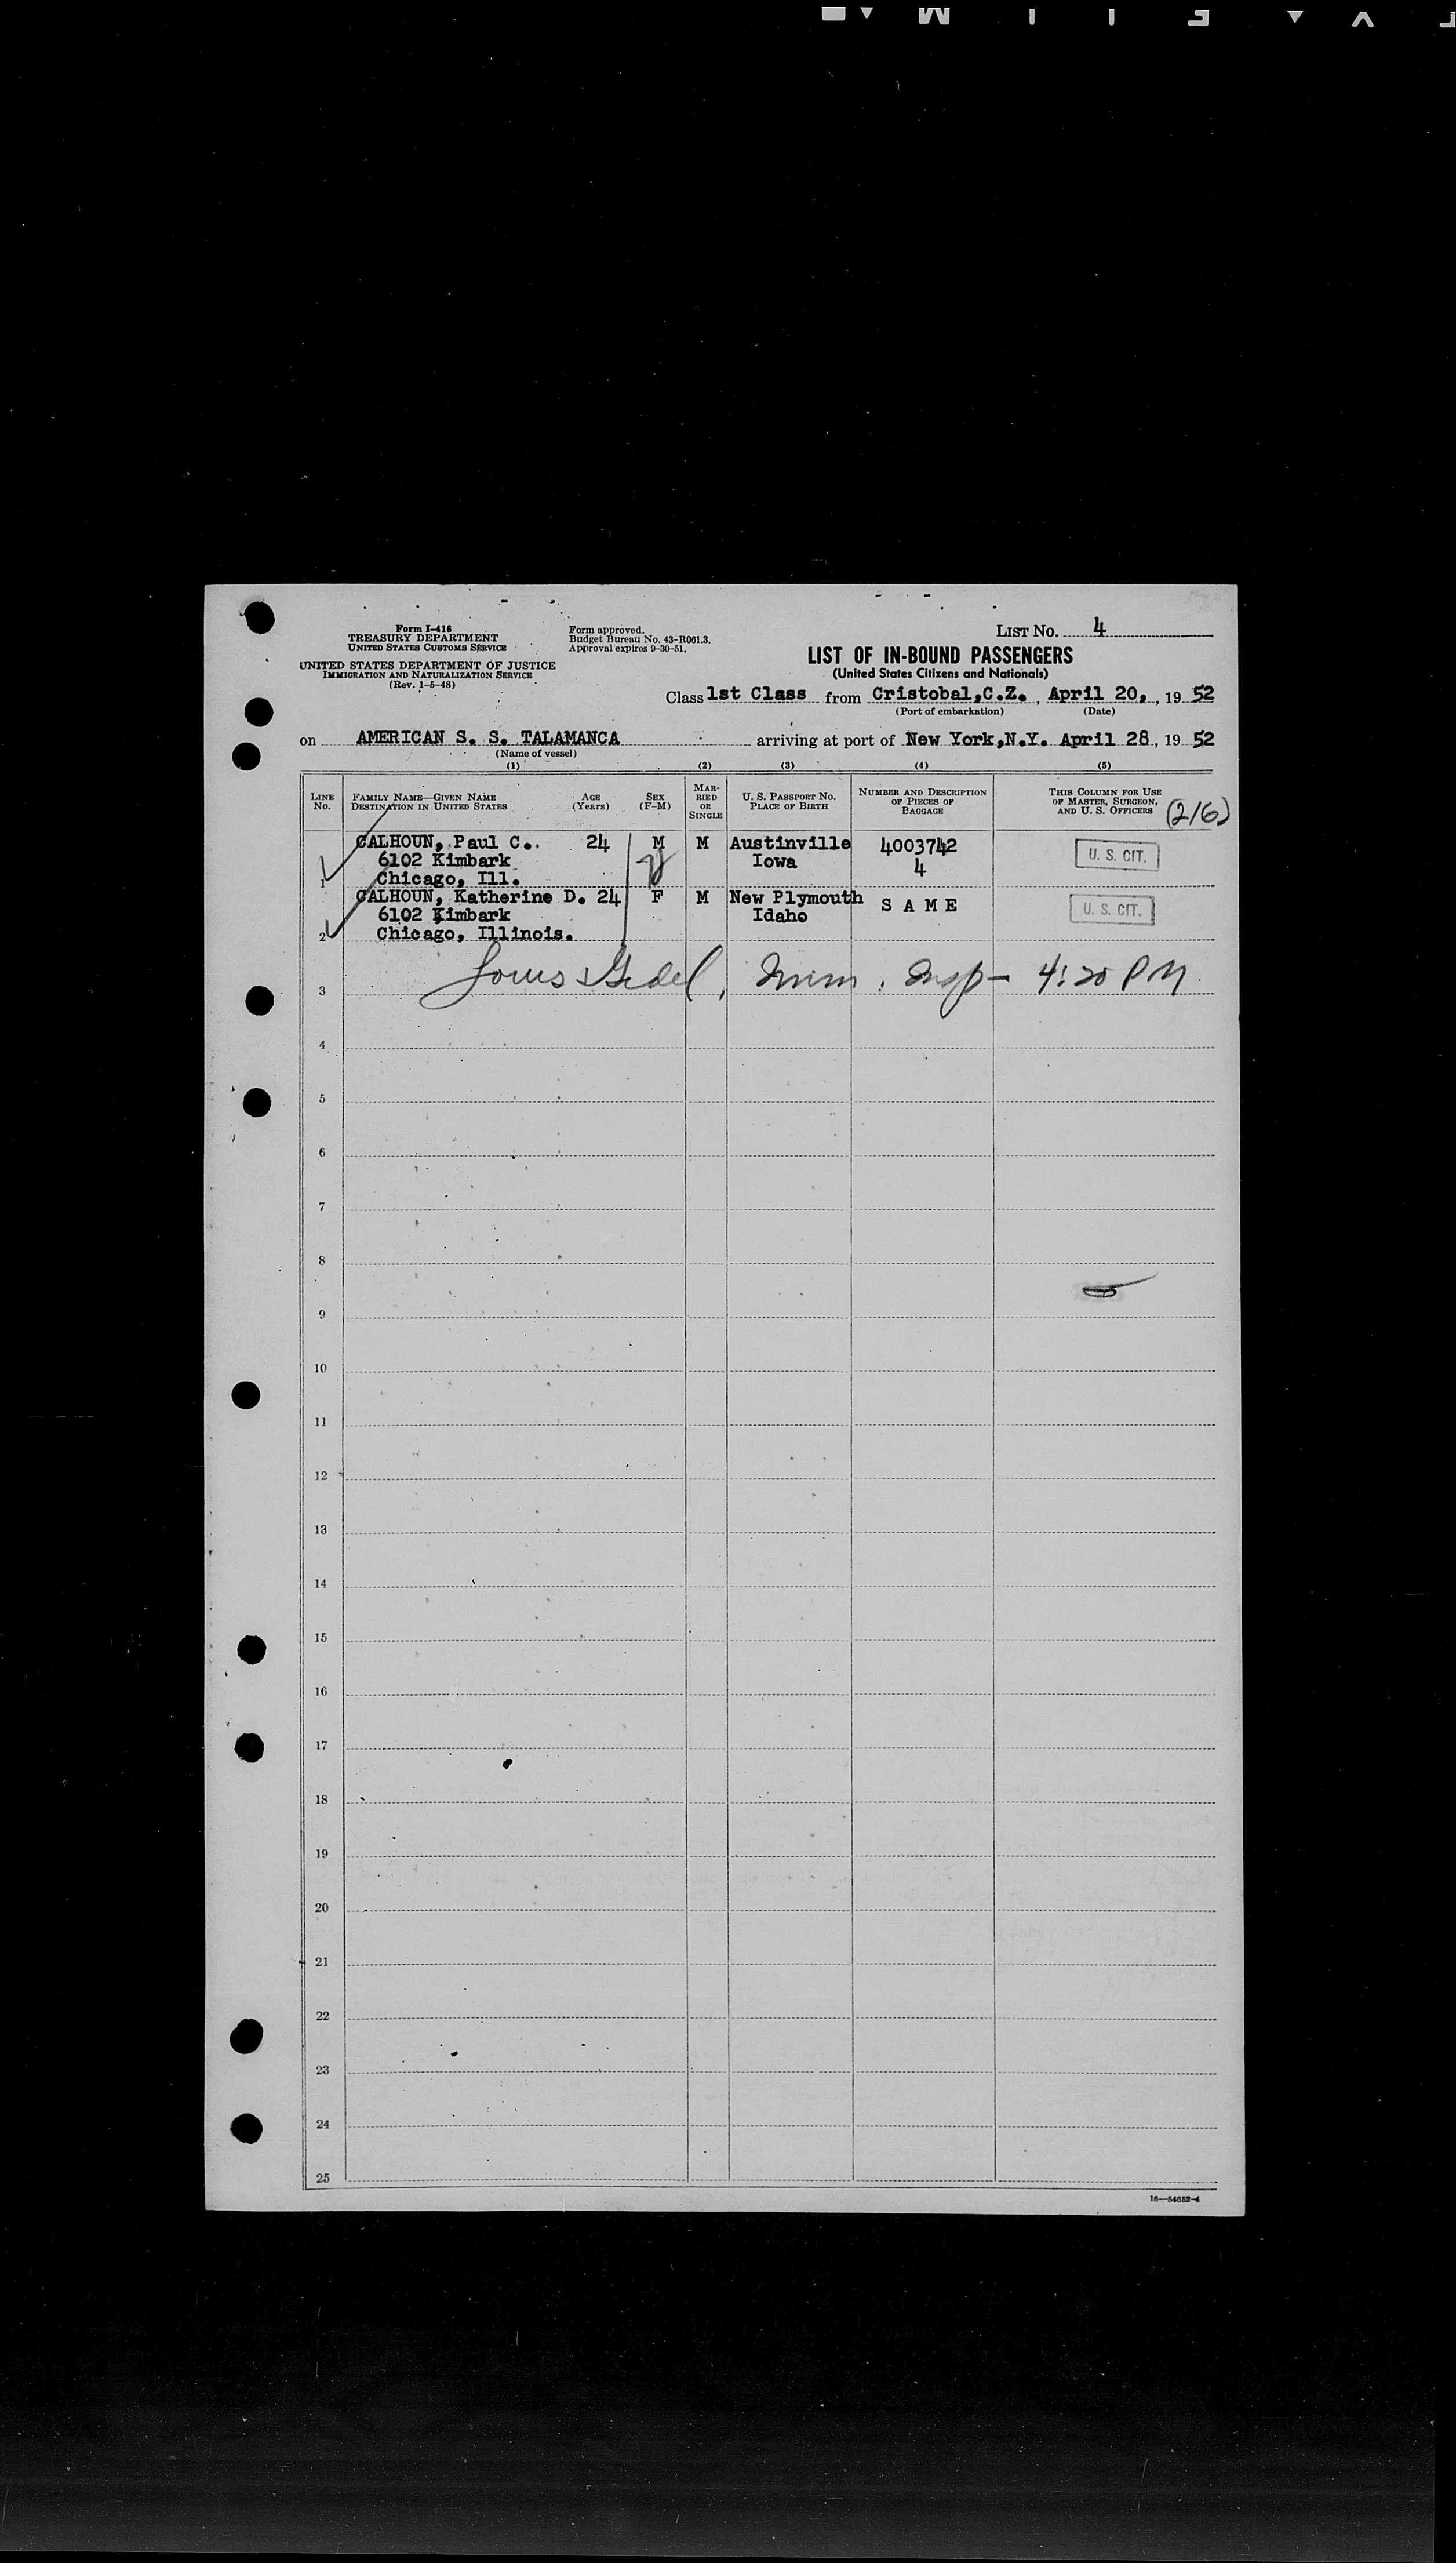 Form I-416
TREASURY DEPARTMENT
UNITED STATES CUSTOMS SERVICE
UNITED STATES DEPARTMENT OF JUSTICE
IMMIGRATION AND NATURALIZATION SERVICE
(Rev. 1-5-48)
Form approved.
Budget Bureau No. 43-R061.3.
Approval expires 9-30-51.
LIST No. 4
LIST OF IN-BOUND PASSENGERS
(United States Citizens and Nationals)
Class 1st Class from Cristobal,C.Z., April 20,, 19 52
(Port of embarkation) (Date)
on AMERICAN S. S. TALAMANCA arriving at port of New York,N.Y. April 28, 19 52
(Name of vessel)
(1) (2) (3) (4) (5)
LINE No.
FAMILY NAME—GIVEN NAME
DESTINATION IN UNITED STATES
AGE (Years)
SEX (F-M)
MARRIED OR SINGLE
U. S. PASSPORT NO.
PLACE OF BIRTH
NUMBER AND DESCRIPTION
OF PIECES OF
BAGGAGE
THIS COLUMN FOR USE
OF MASTER, SURGEON,
AND U. S. OFFICERS
(2/6)
CALHOUN, Paul C.. 24 M M Austinville 4003742
6102 Kimbark Iowa 4 U. S. CIT.
1 Chicago, Ill.
CALHOUN, Katherine D. 24 F M New Plymouth S A M E
6102 Kimbark Idaho U. S. CIT.
2 Chicago, Illinois.
3 Imm. Insp- 4:20 PM
4
5
6
7
8
9
10
11
12
13
14
15
16
17
18
19
20
21
22
23
24
25
16—54652-4